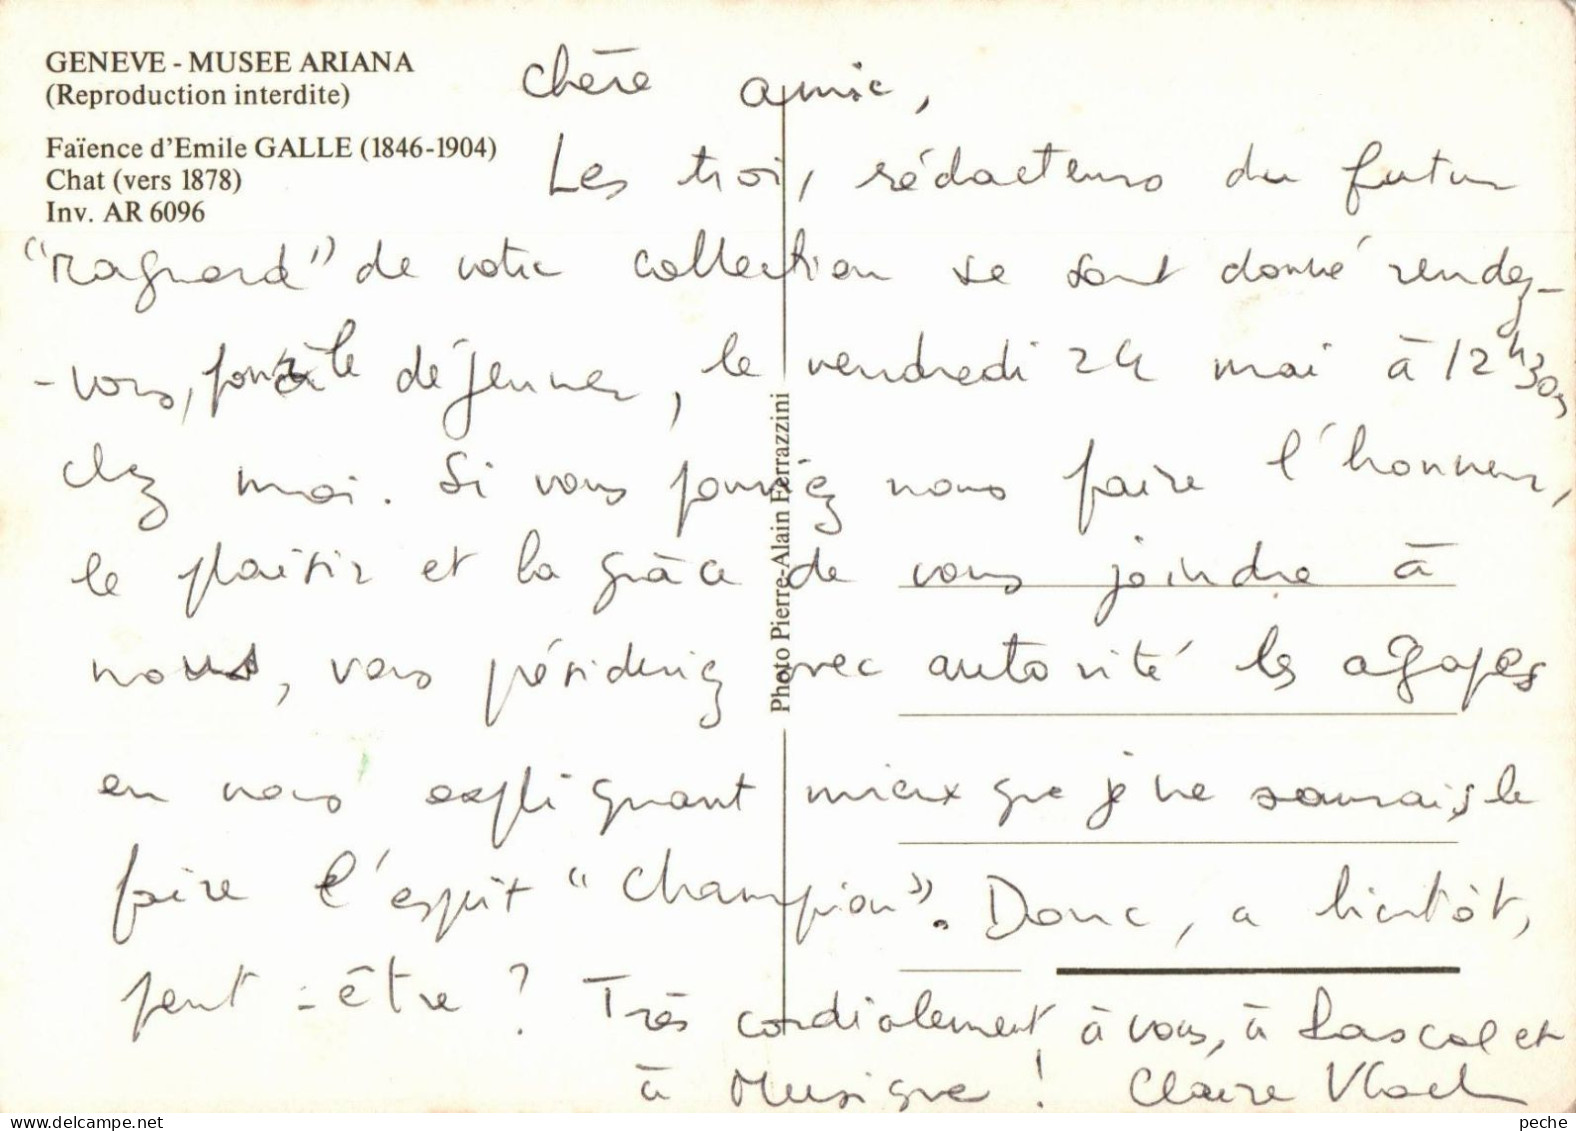 GENEVE - MUSEE ARIANA
(Reproduction interdite)
Faïence d'Emile GALLE (1846-1904)
Chat (vers 1878)
Inv. AR 6096
Chère amie,
Les trois rédacteurs du futur
"ragnard" de votre collection se sont donné rendez-
-vous, pour le déjeuner, le vendredi 24 mai à 12h30,
chez moi. Si vous pouviez nous faire l'honneur,
le plaisir et la grâce de vous joindre à
nous, vous présideriez avec autorité les agapes
en nous expliquant mieux que je ne saurais le
faire l'esprit "Champion". Donc, a bientôt,
peut-être ? Très cordialement à vous, à Pascal et
à Musique ! Claire
Photo Pierre-Alain Ferrazzini
peche